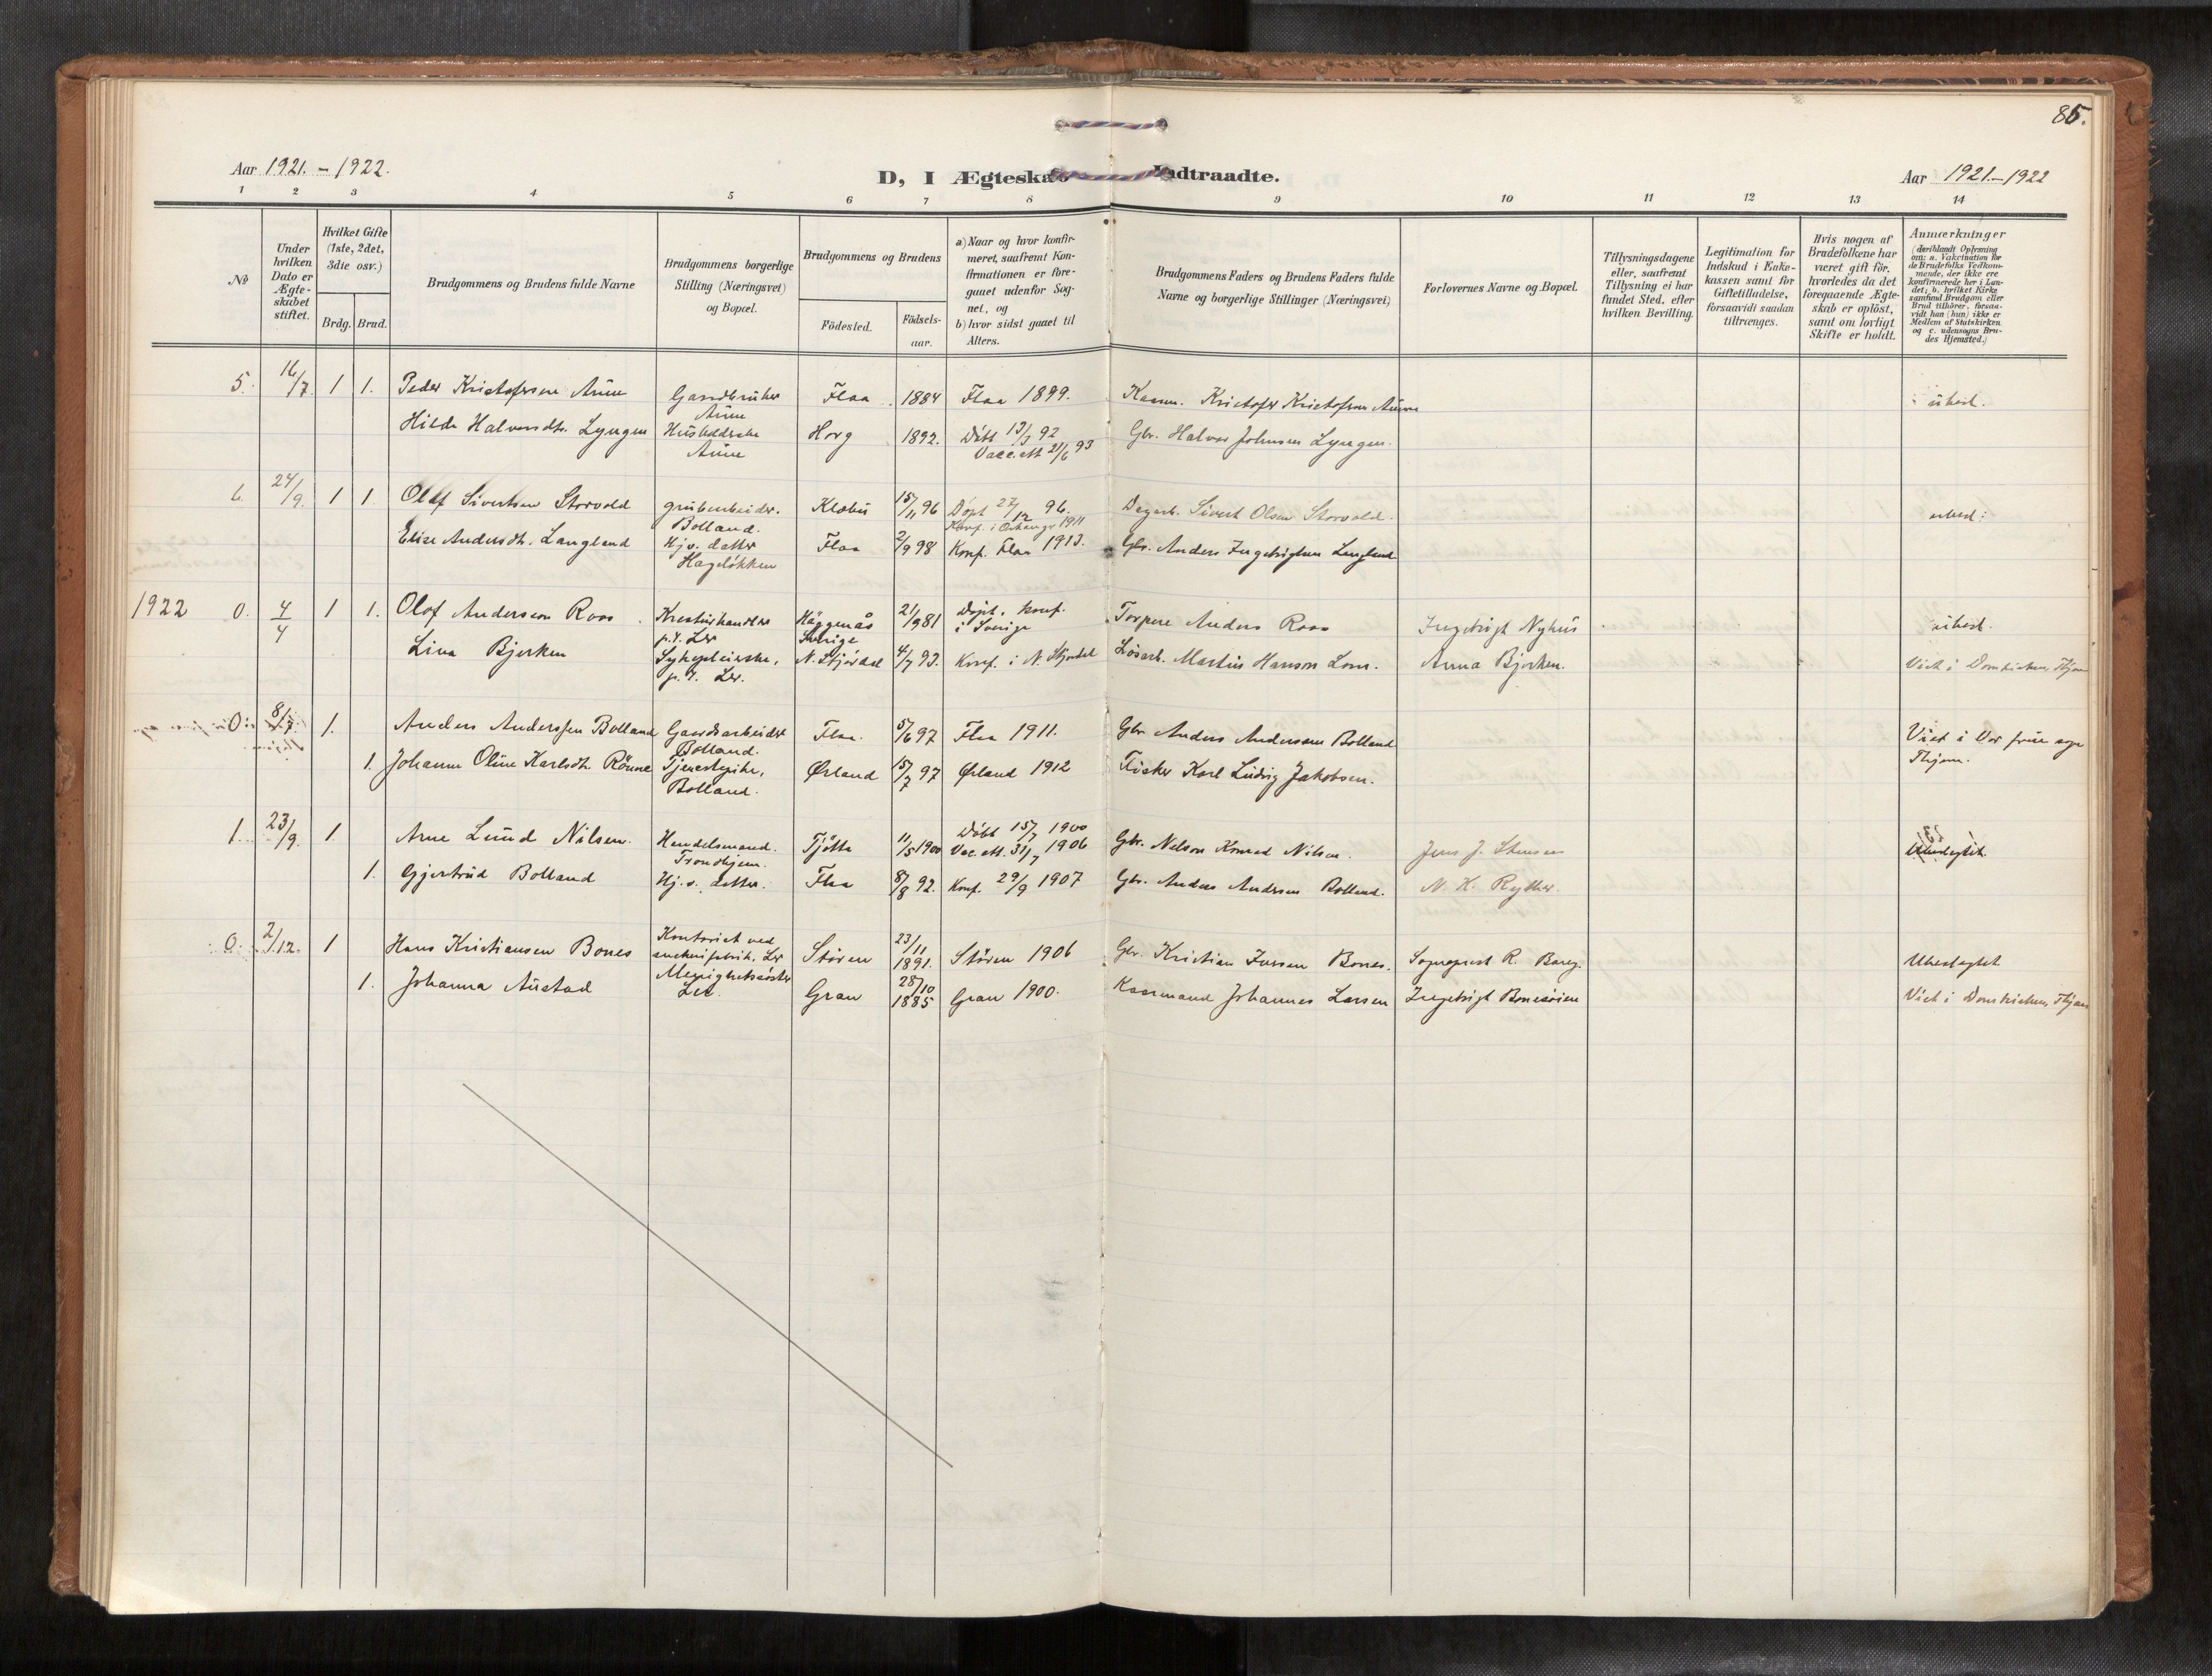 85.
Aar 1921. - 1922.
D, I Ægteskab Indtraadte.
Aar 1921. - 1922
1 2 3 4 5 6 7 8 9 10 11 12 13 14
No
Under hvilken Dato er Ægte-skabet stiftet.
Hvilket Gifte (1ste, 2det, 3die osv.)
Brdg. Brud.
Brudgommens og Brudens fulde Navne
Brudgommens borgerlige Stilling (Næringsvei) og Bopæl.
Brudgommens og Brudens
Födested.
Födsels-aar.
a) Naar og hvor konfir-meret, saafremt Kon-firmationen er fore-gaaet udenfor Sog-net, og
b) hvor sidst gaaet til Alters.
Brudgommens Faders og Brudens Faders fulde Navne og borgerlige Stillinger (Næringsvei)
Forlovernes Navne og Bopæl.
Tillysningsdagene eller, saafremt Tillysning ei har fundet Sted, efter hvilken Bevilling.
Legitimation for Indskud i Enke-kassen samt for Giftetilladelse, forsaavidt saadan tiltrænges.
Hvis nogen af Brudefolkene har været gift för, hvorledes da det foregaaende Ægte-skab er oplöst, samt om lovligt Skifte er holdt.
Anmærkninger
(deriblandt Oplysning om: a. Vakcination for de Brudefolks Vedkom-mende, der ikke ere konfirmerede her i Lan-det; b. hvilket Kirke-samfund Brudgom eller Brud tilhörer, forsaa-vidt han (hun) ikke er Medlem af Statskirken og c. udensogns Bru-des Hjemsted.)
5. 16/7. 1 1. Peder Kristofersen Aune Gaardbruker Aune Flaa 1884 Flaa 1899. Kaarm. Kristofer Kristofersen Aune ubesl.
Hilda Halvorsdtr. Lyngen Husholderske Aune Horg 1892. Döbt 13/3 92 Vacc.att 21/6 93 Gbr. Halvor Johnsen Lyngen.
6. 24/9. 1 1. Olaf Sivertsen Storvold grubearbeider. Bolland. Klæbu 15/11 96 Döpt 27/12 96. 1911 Dagarb. Sivert Olsen Storvold. ubesl.
Elise Andersdtr. Langland Hjv. datter Hageløkken Flaa 2/9 98 Konf. Flaa 1913. Gbr. Anders Ingebrigtsen Langland
1922 0. 4/4 1 1. Olof Andersson Roos Kreaturhandler p.t. Ler Häggenås Sverige 21/9 81 Döpt. konf. i Sverige Torpare Anders Roos Ingebrigt Nyhus ubesl.
Lina Bjerken Sykepleierske, p.t. Ler. N. Stjördal 4/7 93. Konf. i N. Stjördal Lösarb. Martin Hanson Lom. Anna Bjerken. Viet i Domkirken, Thjem
0. 8/7. 1. Anders Anderssen Bolland Gaardsarbeider Bolland. Flaa. 5/6 97 Flaa 1911. Gbr. Anders Anderssen Bolland Viet i Vor frue Thjem.
1. Johanne Oline Karlsdtr. Rönne Tjenestepike, Bolland. Ørland 15/7 97 Ørland 1912 Fisker Karl Ludvig Jakobsen.
1. 23/9. 1. Arne Lund Nilsen. Handelsmand. Trondhjem. Tjötta 11/5 1900 Döbt 15/7 1900 Vac. att. 31/7 1906 Gbr. Nelson Konrad Nilsen. Jens J. Stensen Ubeslegtet.
1. Gjertrud Bolland Hj.v. datter. Flaa 8/8 92. Konf. 29/9 1907 Gbr. Anders Andersen Bolland. N. K. Rytter.
0. 2/12. 1 Hans Kristiansen Bones Kontorist ved Ler Stören 23/11 1891. Stören 1906 Gbr. Kristian Jensen Bones. Sogneprest R. Ubeslegtet.
1. Johanna Austad Menighetssöster Ler. Gran 28/10 1885 Gran 1900. Kaarmand Johannes Larsen Ingebrigt Viet i Domkirken, Thjem